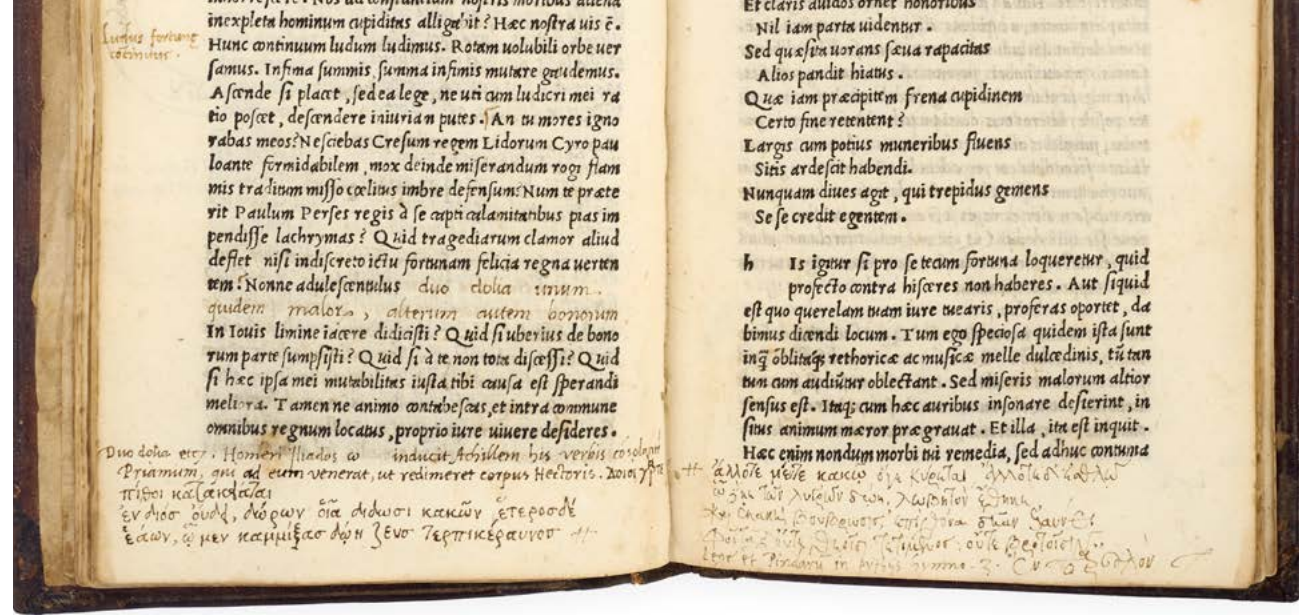 Nos ad constantiam nostris moribus aliena
inexpleta hominum cupiditas alligabit? Hæc nostra uis ē.
Ludus fortunę
continuus.
Hunc continuum ludum ludimus. Rotam uolubili orbe uer
samus. Infima summis, summa infimis mutare gaudemus.
Ascende si placet, sed ea lege, ne uti cum ludicri mei ra
tio poscet, descendere iniuriam putes. An tu mores igno
rabas meos? Nesciebas Cresum regem Lidorum Cyro pau
lo ante formidabilem, mox deinde miserandum rogi flam
mis traditum misso cœlitus imbre defensum? Num te præte
rit Paulum Perses regis à se capti calamitatibus pias im
pendisse lachrymas? Quid tragediarum clamor aliud
deflet nisi indiscreto ictu fortunam felicia regna uerten
tem? Nonne adulescentulus duo dolia unum
quidem malorum, alterum autem bonorum
In Iouis limine iacere didicisti? Quid si uberius de bono
rum parte sumpsisti? Quid si à te non tota discessi? Quid
si hæc ipsa mei mutabilitas iusta tibi causa est sperandi
meliora. Tamen ne animo contabescas, et intra commune
omnibus regnum locatus, proprio iure uiuere desideres.
Duo dolia etc. Homeri Iliados ω inducit Achillem his verbis
Priamum, qui ad eum venerat, ut redimeret corpus Hectoris. δοιοὶ
πίθοι κατακείαται
ἐν διὸς οὔδει, δώρων οἷα δίδωσι κακῶν ἕτερος δὲ
ἐάων, ᾧ μεν καμμίξας δώη ζευσ τερπικέραυνοσ
Et claris auidos ornet honoribus
Nil iam parta uidentur.
Sed quæsita uorans sæua rapacitas
Alios pandit hiatus.
Quæ iam præcipitem frena cupidinem
Certo fine retentent?
Largis cum potius muneribus fluens
Sitis ardescit habendi.
Nunquam diues agit, qui trepidus gemens
Sese credit egentem.
h Is igitur si pro se tecum fortuna loqueretur, quid
profecto contra hisceres non haberes. Aut si quid
est quo querelam tuam iure tuearis, proferas oportet, da
bimus dicendi locum. Tum ego speciosa quidem ista sunt
inq̃ oblitaq; rethoricæ ac musicæ melle dulcedinis, tū tan
tun cum audiūtur oblectant. Sed miseris malorum altior
sensus est. Itaq; cum hæc auribus insonare desierint, in
situs animum mæror prægrauat. Et illa, ita est inquit.
Hæc enim nondum morbi tui remedia, sed adhuc contuma
ἄλλοτε μέτε κακῷ ὅγε κύρεται